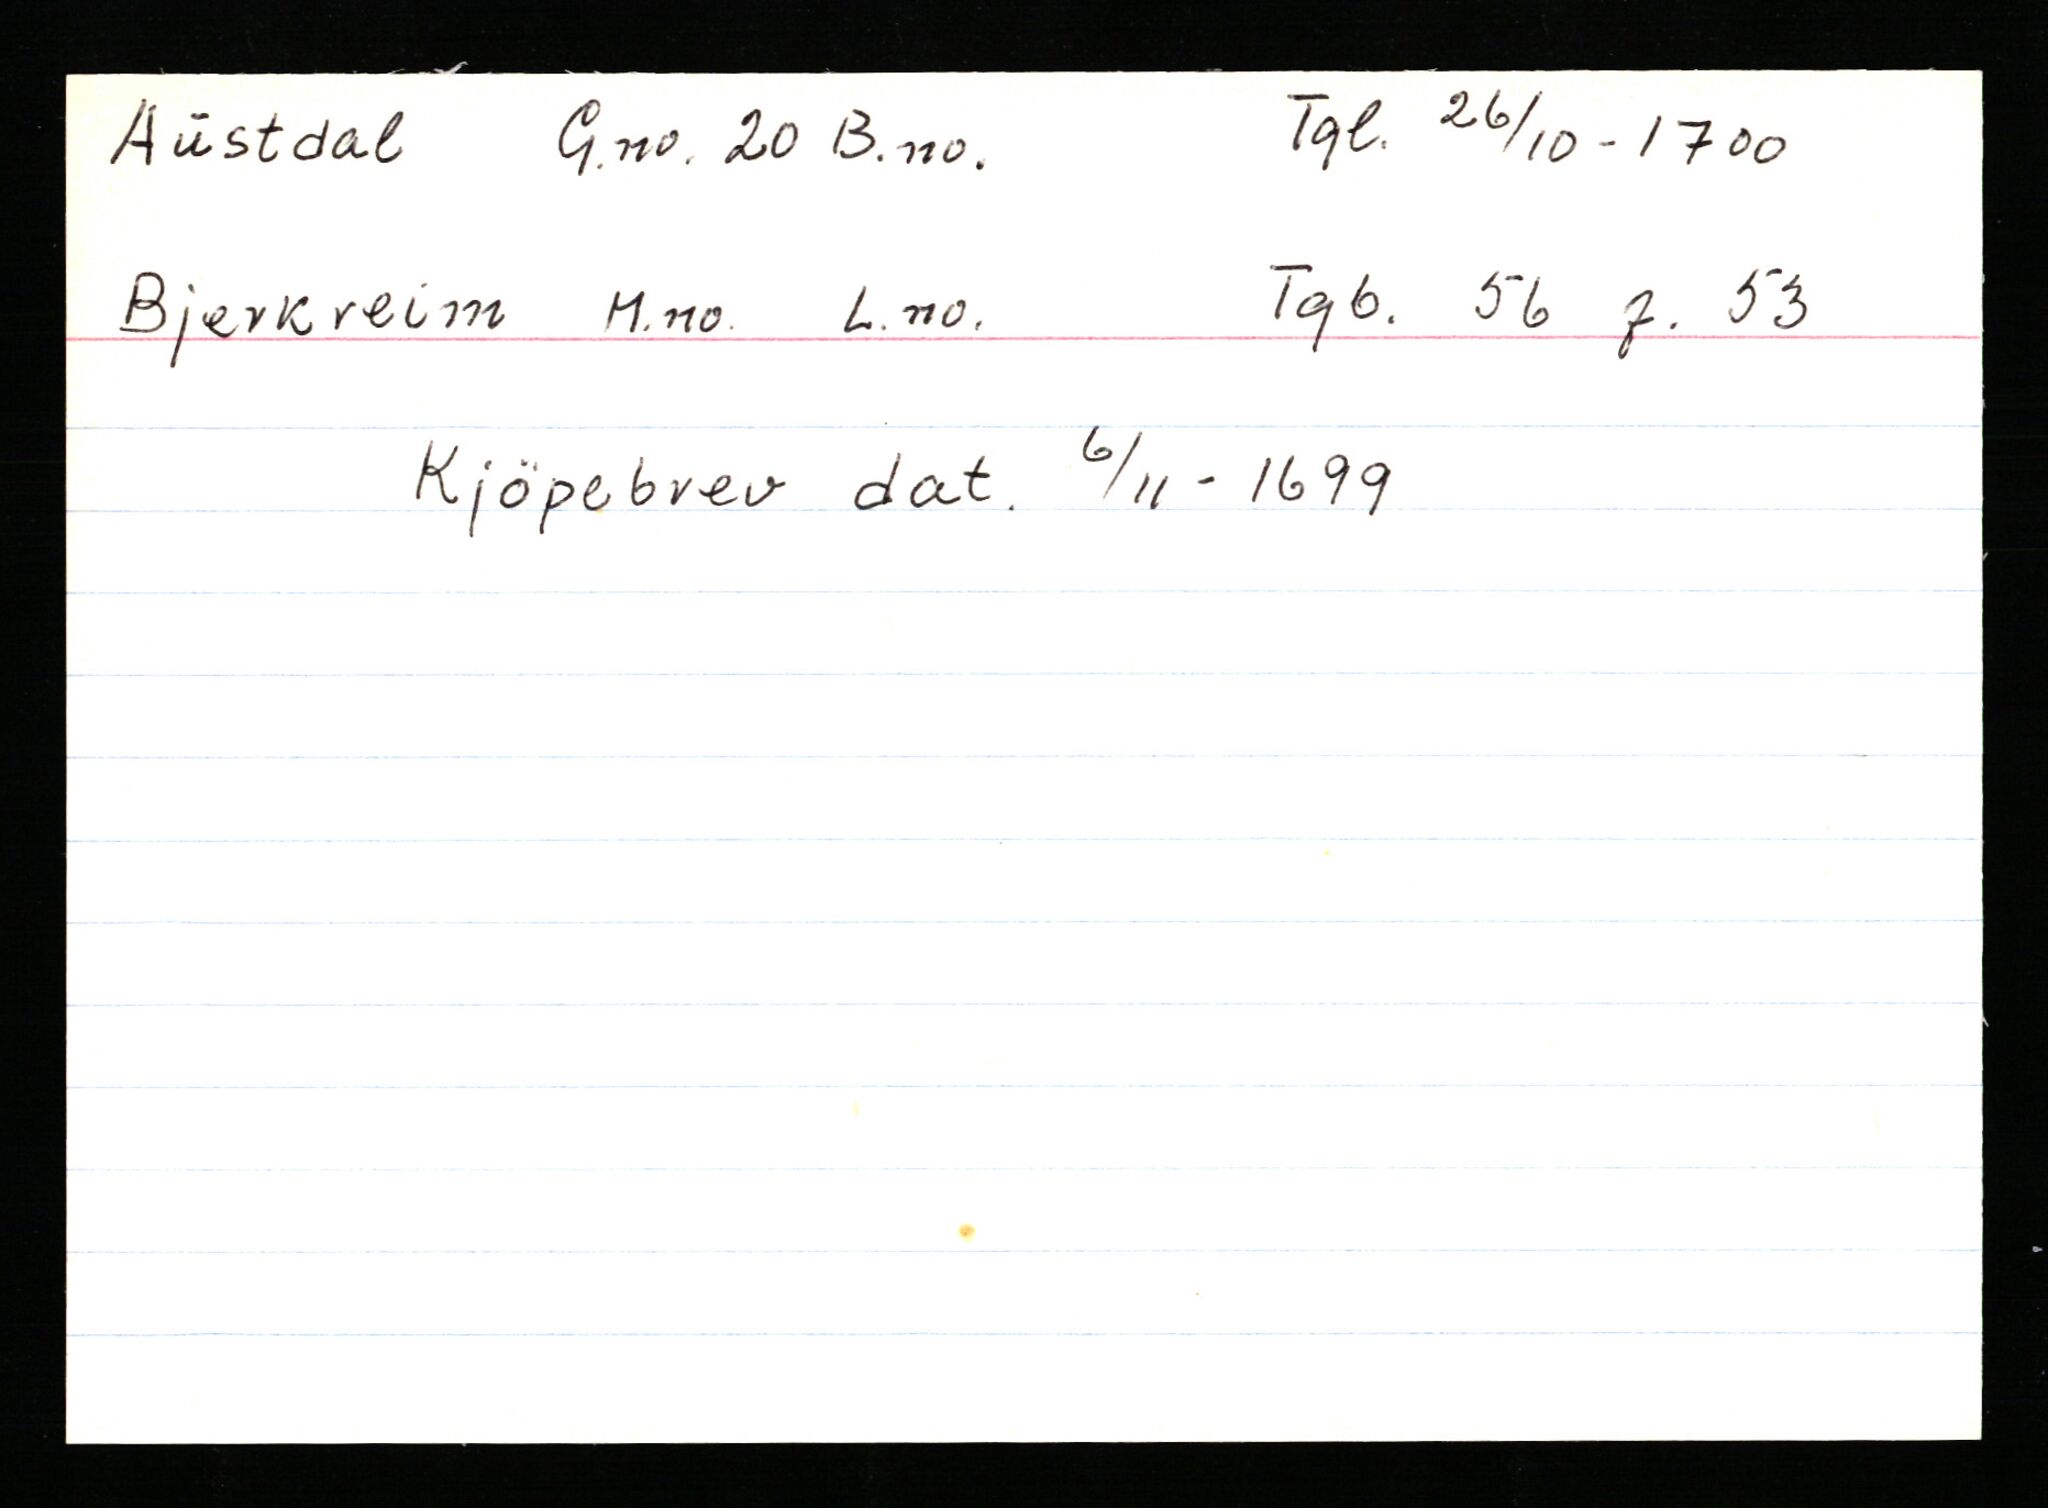 Aūstdal G.no. 20 B.no. Tgl. 26/10 - 1700
Bjerkreim M.no. L.no. Tgb. 56 f. 53
Kjöpebrev dat. 6/11 - 1699